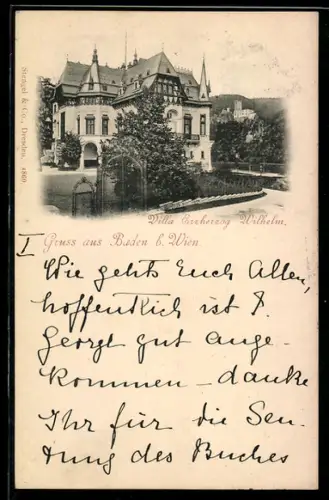 Stengel & Co., Dresden, 4860
Villa Erzherzog Wilhelm.
Gruss aus Baden b. Wien
I
Wie gehts Euch Allen,
hoffentlich ist
Georgl gut ange-
kommen – danke
Ihr für die Sen-
dung des Buches